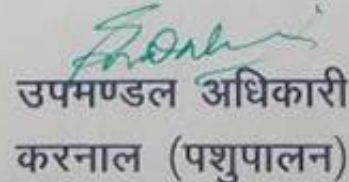 उपमण्डल अधिकारी
करनाल (पशुपालन)